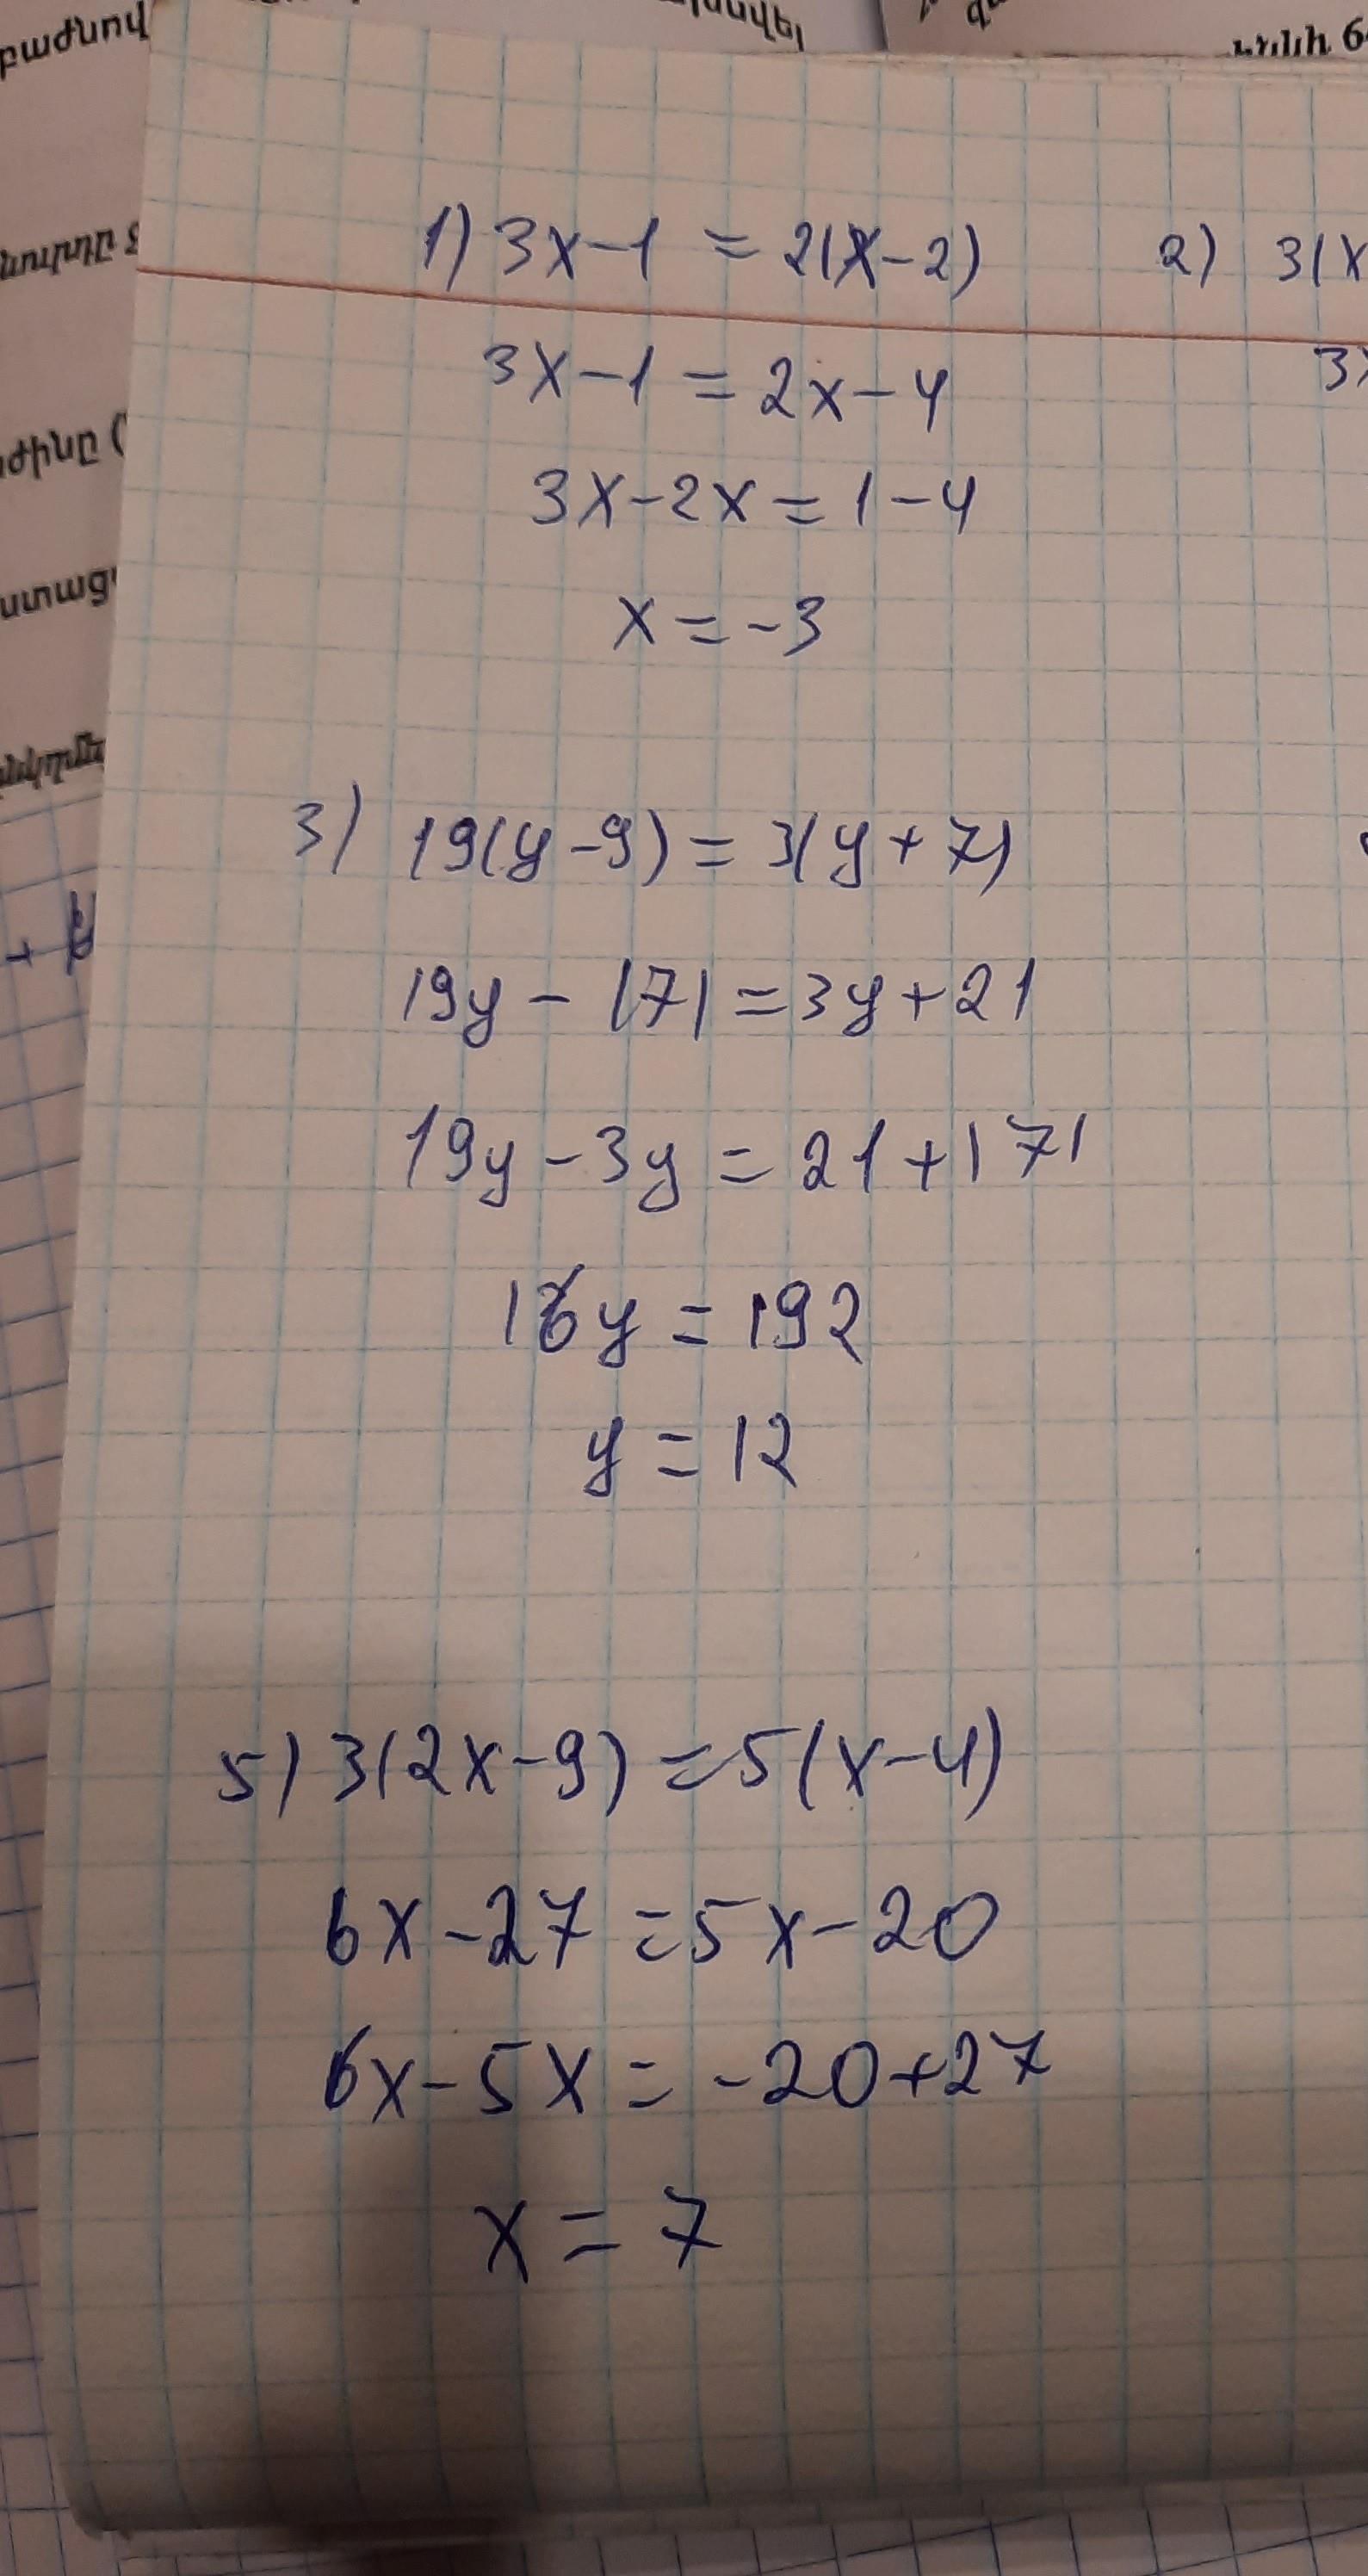 բաժնով
1) 3x-1 = 2(x-2)
2) 3(x
3x-1 = 2x-4
3x
3x-2x = 1-4
x = -3
3) 19(y-9) = 3(y+7)
19y - 171 = 3y+21
19y-3y = 21+171
16y = 192
y = 12
5) 3(2x-9) = 5(x-4)
6x-27 = 5x-20
6x-5x = -20+27
x = 7